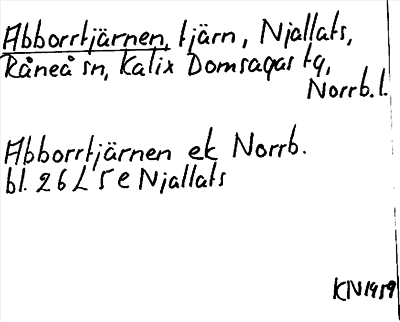 Abborrtjärnen, tjärn, Njallats,
Råneå sn, Kalix Domsagas tg,
Norrb. l.
Abborrtjärnen ek Norrb.
bl. 26 L 5 e Njallats
KN 1959